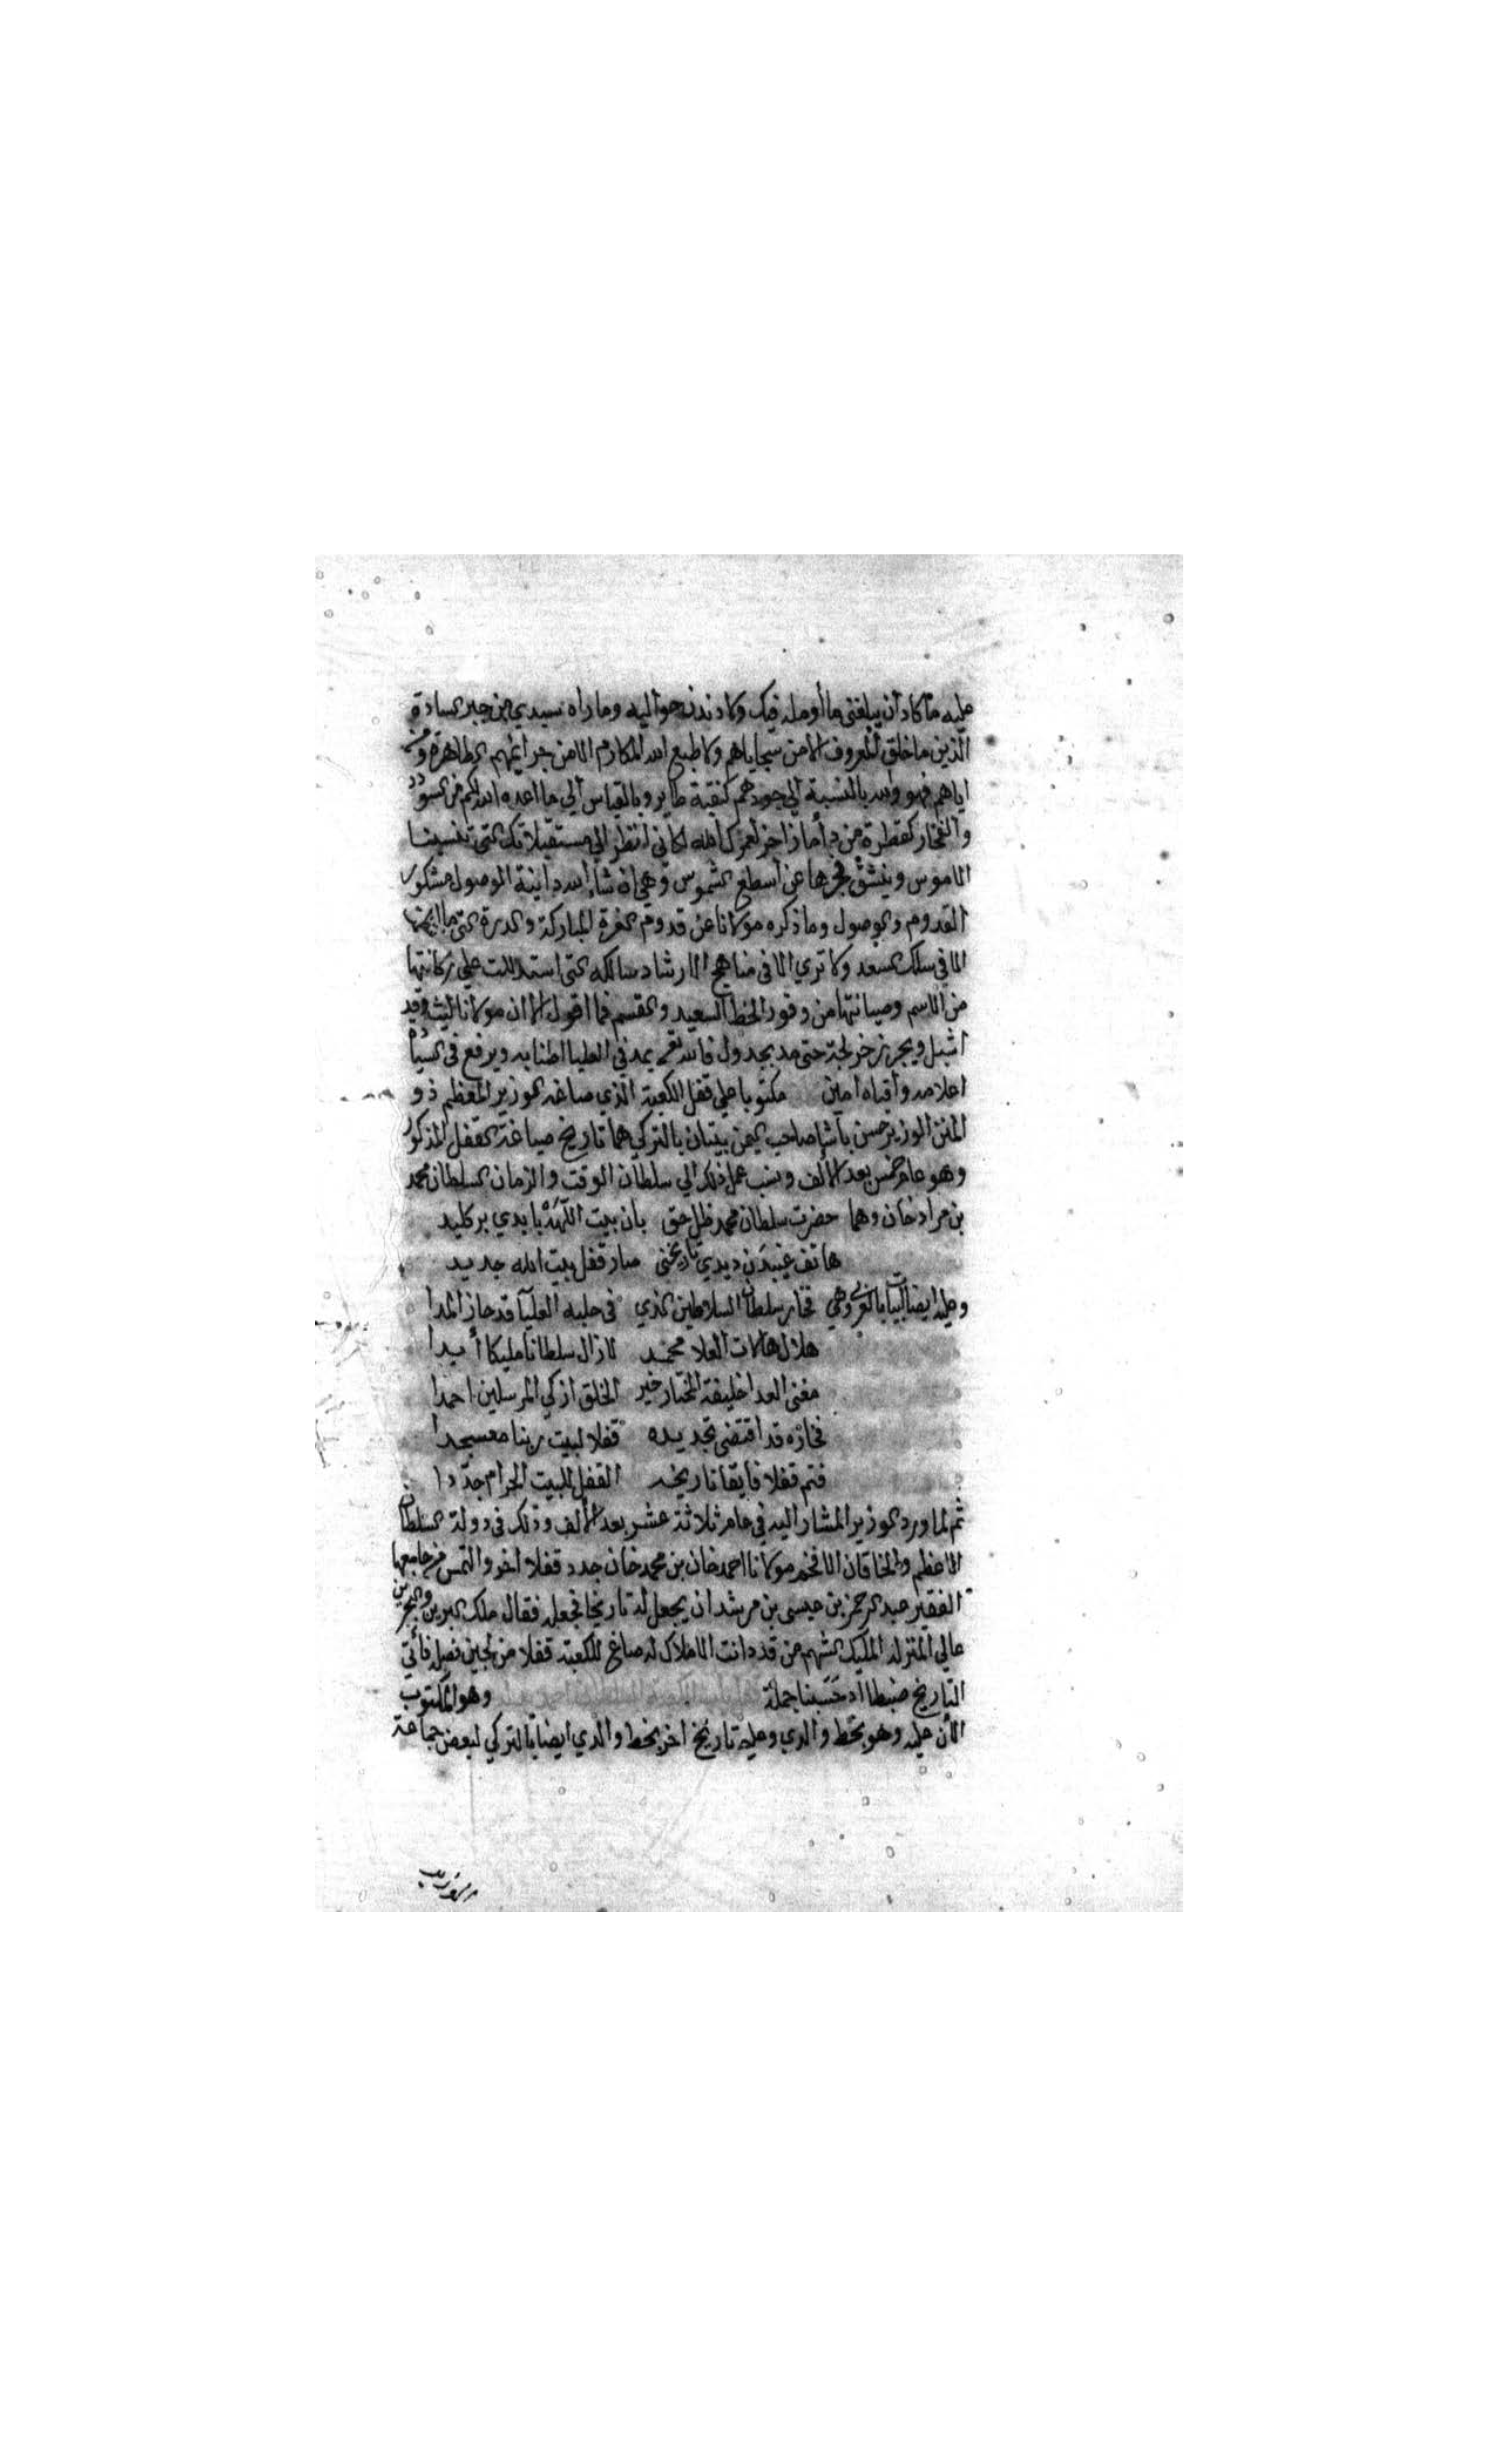 عليه ما كاد أن يبلغني ما أومله فيك ولا دندن حواليه وما رآه سيدي من جبر السادة
الذين ما خلق المعروف إلا من سجاياهم ولا طبع الله المكارم إلا من جراثيمهم الطاهرة ومن
اياهم فهو والله بالنسبة إلى جودهم كنقبة طاير وبالقياس إلى ما أعده الله لكم من السودد
والفخار كقطرة من زاخر لعمرك الله لكاني انظر الى مستقبلاتك التي
الاموس وينشق فجرها عن أسطع الشموس وهي إن شاء الله دانية الوصول مشكورة
القدوم والوصول وما ذكره مولانا من قدوم الغرة المباركة والدرة التي
الا في سلك السعد ولا تري الا في مناهج الارشاد سالكه التي استدللت على زكانتها
من الاسم وصيانتها من وفور الحظ السعيد والقسم فما اقول الا ان مولانا ليث وقد
اشبل وبحر زخر لجة حتى مد بجدول فالله تعالى يمد في العليا اطنابه ويرفع في
اعلامه وأقباه امين مكتوبا على قفل الكعبة الذي صاغه الوزير المعظم ذو
المنن الوزير حسن باشا صاحب اليمن بيتان بالتركي هما تاريخ صياغة القفل المذكور
وهو عام خمس بعد الألف ونسب عمل ذلك الي سلطان الوقت والزمان السلطان محمد
بن مراد خان وهما حضرت سلطان محمد ظل حق بان بيت اللهه يابدي بر كليد
هاتف غيبدن ديدي تاريخنى قفل بيت الله جديد
وعليه ايضا ابيات بالعربي وهي فخار سلطان السلاطين الذي في حلبه العليآ قد حاز المدا
هلال هالات العلا محمد لازال سلطانا مليكا أيدا
مغني العدا خليفة المختار خير الخلق ازكي المرسلين احمدا
فخاره قد اقتضى تجديده قفلا لبيت ربنا معسجدا
فتم قفلا فايقا تاريخه القفل للبيت الحرام جددا
ثم لما ورد الوزير المشار اليه في عام ثلاثة عشر بعد الألف وذلك في دولة السلطان
الاعظم والخاقان الافخم مولانا احمد خان بن محمد خان جدد قفلا اخر والتمس من جامعها
الفقير عبد الرحمن بن عيسى بن مرشد ان يجعل له تاريخا فجعله فقال ملك البرين والبحرين
عالي المنزله المليك الشهم من قد دانت الاملاك له صاغ للكعبة قفلا من لجين فصله فأتى
التاريخ ضبطا اذ حسبنا جمله وهو المكتوب
الأن عليه وهو بخط والدي وعليه تاريخ اخر بخط والدي ايضا بالتركي لبعض جماعة
الوزير